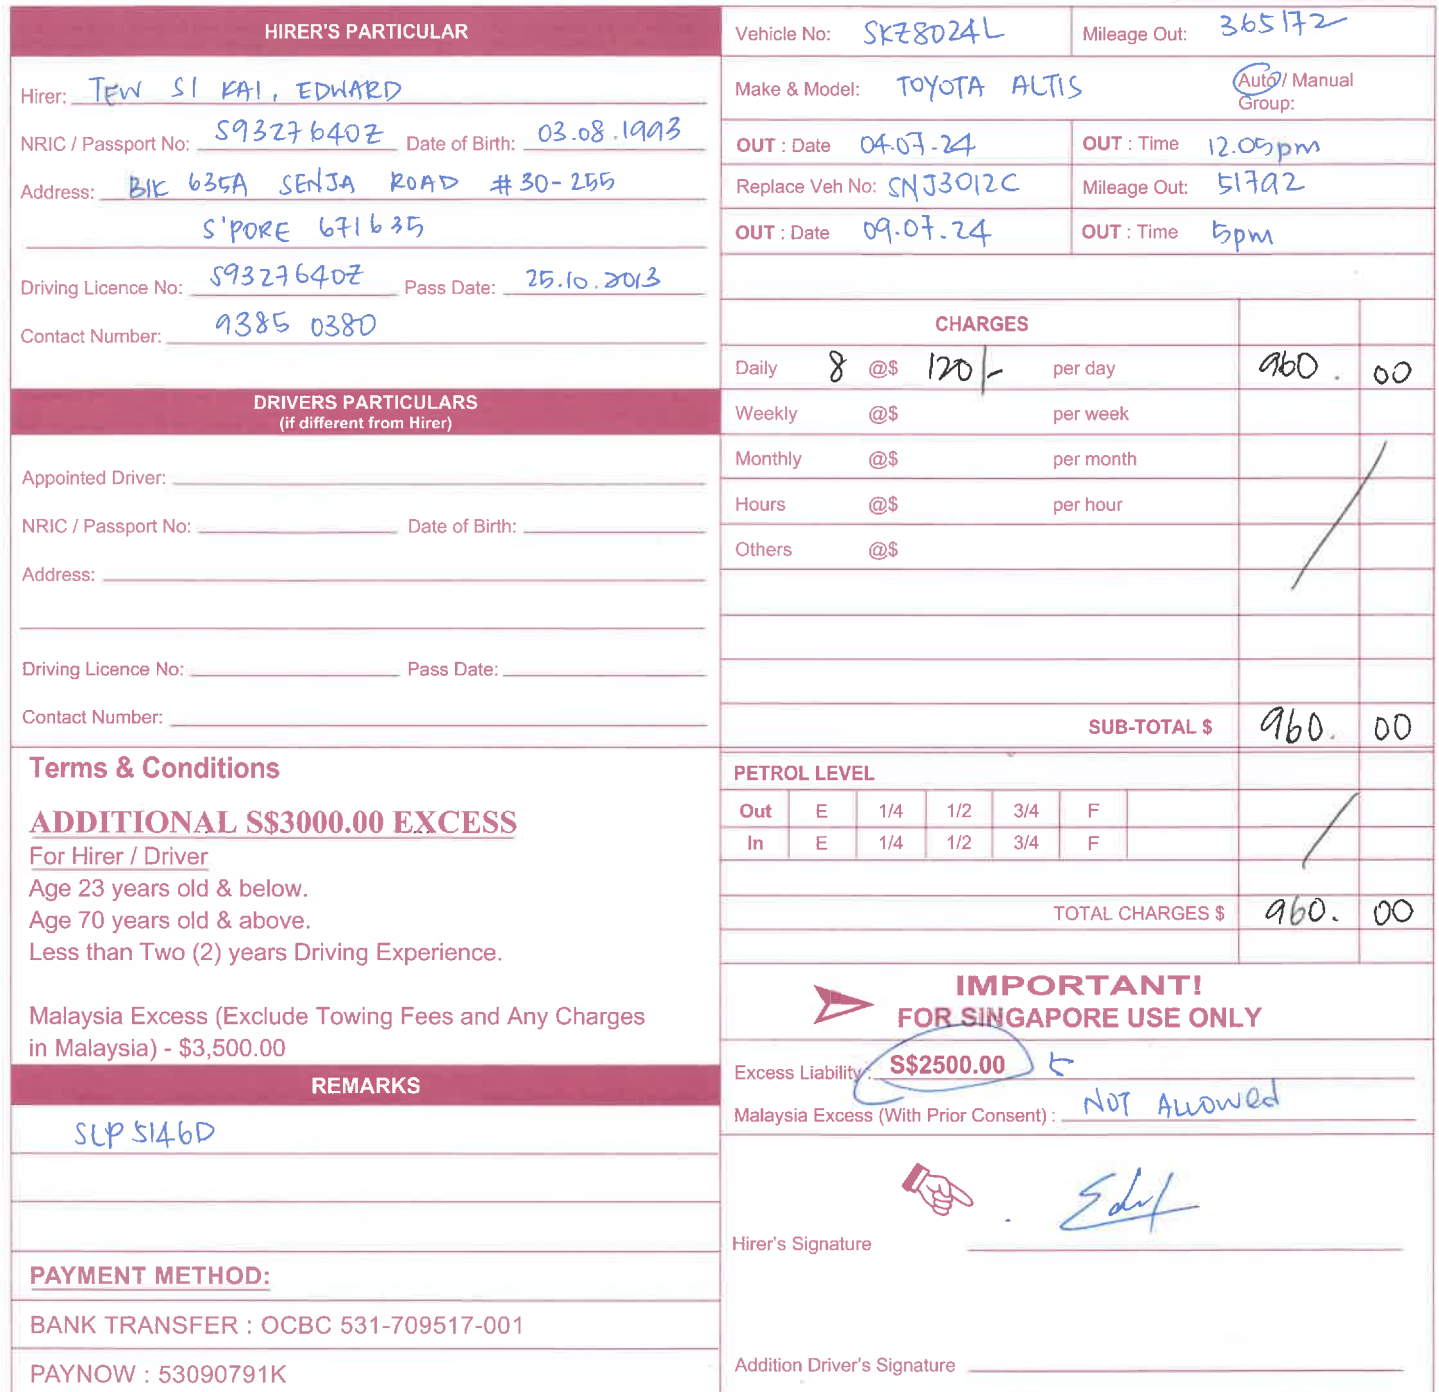 HIRER'S PARTICULAR
Hirer: TEW SI KAI, EDWARD
NRIC / Passport No: S9327640Z Date of Birth: 03.08.1993
Address: Blk 635A SENJA ROAD #30-255
S'PORE 671635
Driving Licence No: S9327640Z Pass Date: 25.10.2013
Contact Number: 9385 0380
DRIVERS PARTICULARS
(if different from Hirer)
Appointed Driver:
NRIC / Passport No: Date of Birth:
Address:
Driving Licence No: Pass Date:
Contact Number:
Terms & Conditions
ADDITIONAL S$3000.00 EXCESS
For Hirer / Driver
Age 23 years old & below.
Age 70 years old & above.
Less than Two (2) years Driving Experience.
Malaysia Excess (Exclude Towing Fees and Any Charges
in Malaysia) - $3,500.00
REMARKS
SLP5146D
PAYMENT METHOD:
BANK TRANSFER : OCBC 531-709517-001
PAYNOW : 53090791K
Vehicle No: SKZ8024L Mileage Out: 365172
Make & Model: TOYOTA ALTIS Auto / Manual
Group:
OUT : Date 04.07.24 OUT : Time 12.05pm
Replace Veh No: SNJ3012C Mileage Out: 51792
OUT : Date 09.07.24 OUT : Time 5pm
CHARGES
Daily 8 @$ 120/- per day 960.00
Weekly @$ per week
Monthly @$ per month
Hours @$ per hour
Others @$
SUB-TOTAL $ 960.00
PETROL LEVEL
Out E 1/4 1/2 3/4 F
In E 1/4 1/2 3/4 F
TOTAL CHARGES $ 960.00
IMPORTANT!
FOR SINGAPORE USE ONLY
Excess Liability : S$2500.00
Malaysia Excess (With Prior Consent) : NOT Allowed
Hirer's Signature
Addition Driver's Signature